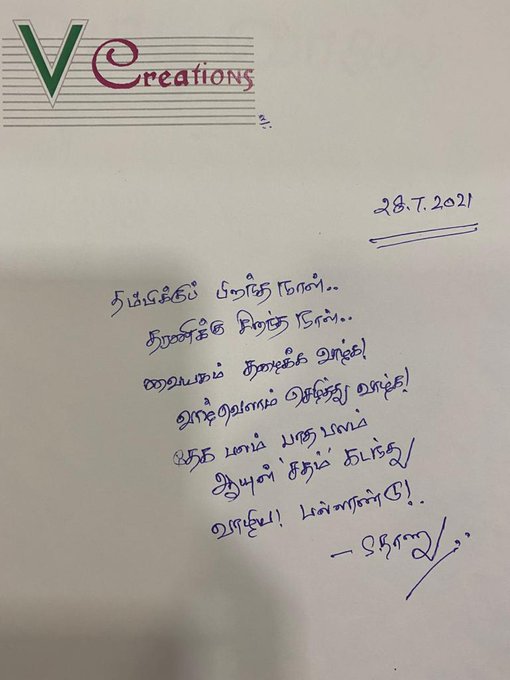 V Creations
உ
28.7.2021
தம்பிக்குப் பிறந்த நாள்..
தரணிக்கு சிறந்த நாள்..
வையகம் தழைக்க வாழ்க!
வாழ்வெலாம் செழித்து வாழ்க!
தேக பலம் பாத பலம்
ஆயுள் 'சதம்' கடந்து
வாழிய! பல்லாண்டு!.
- தாணு..